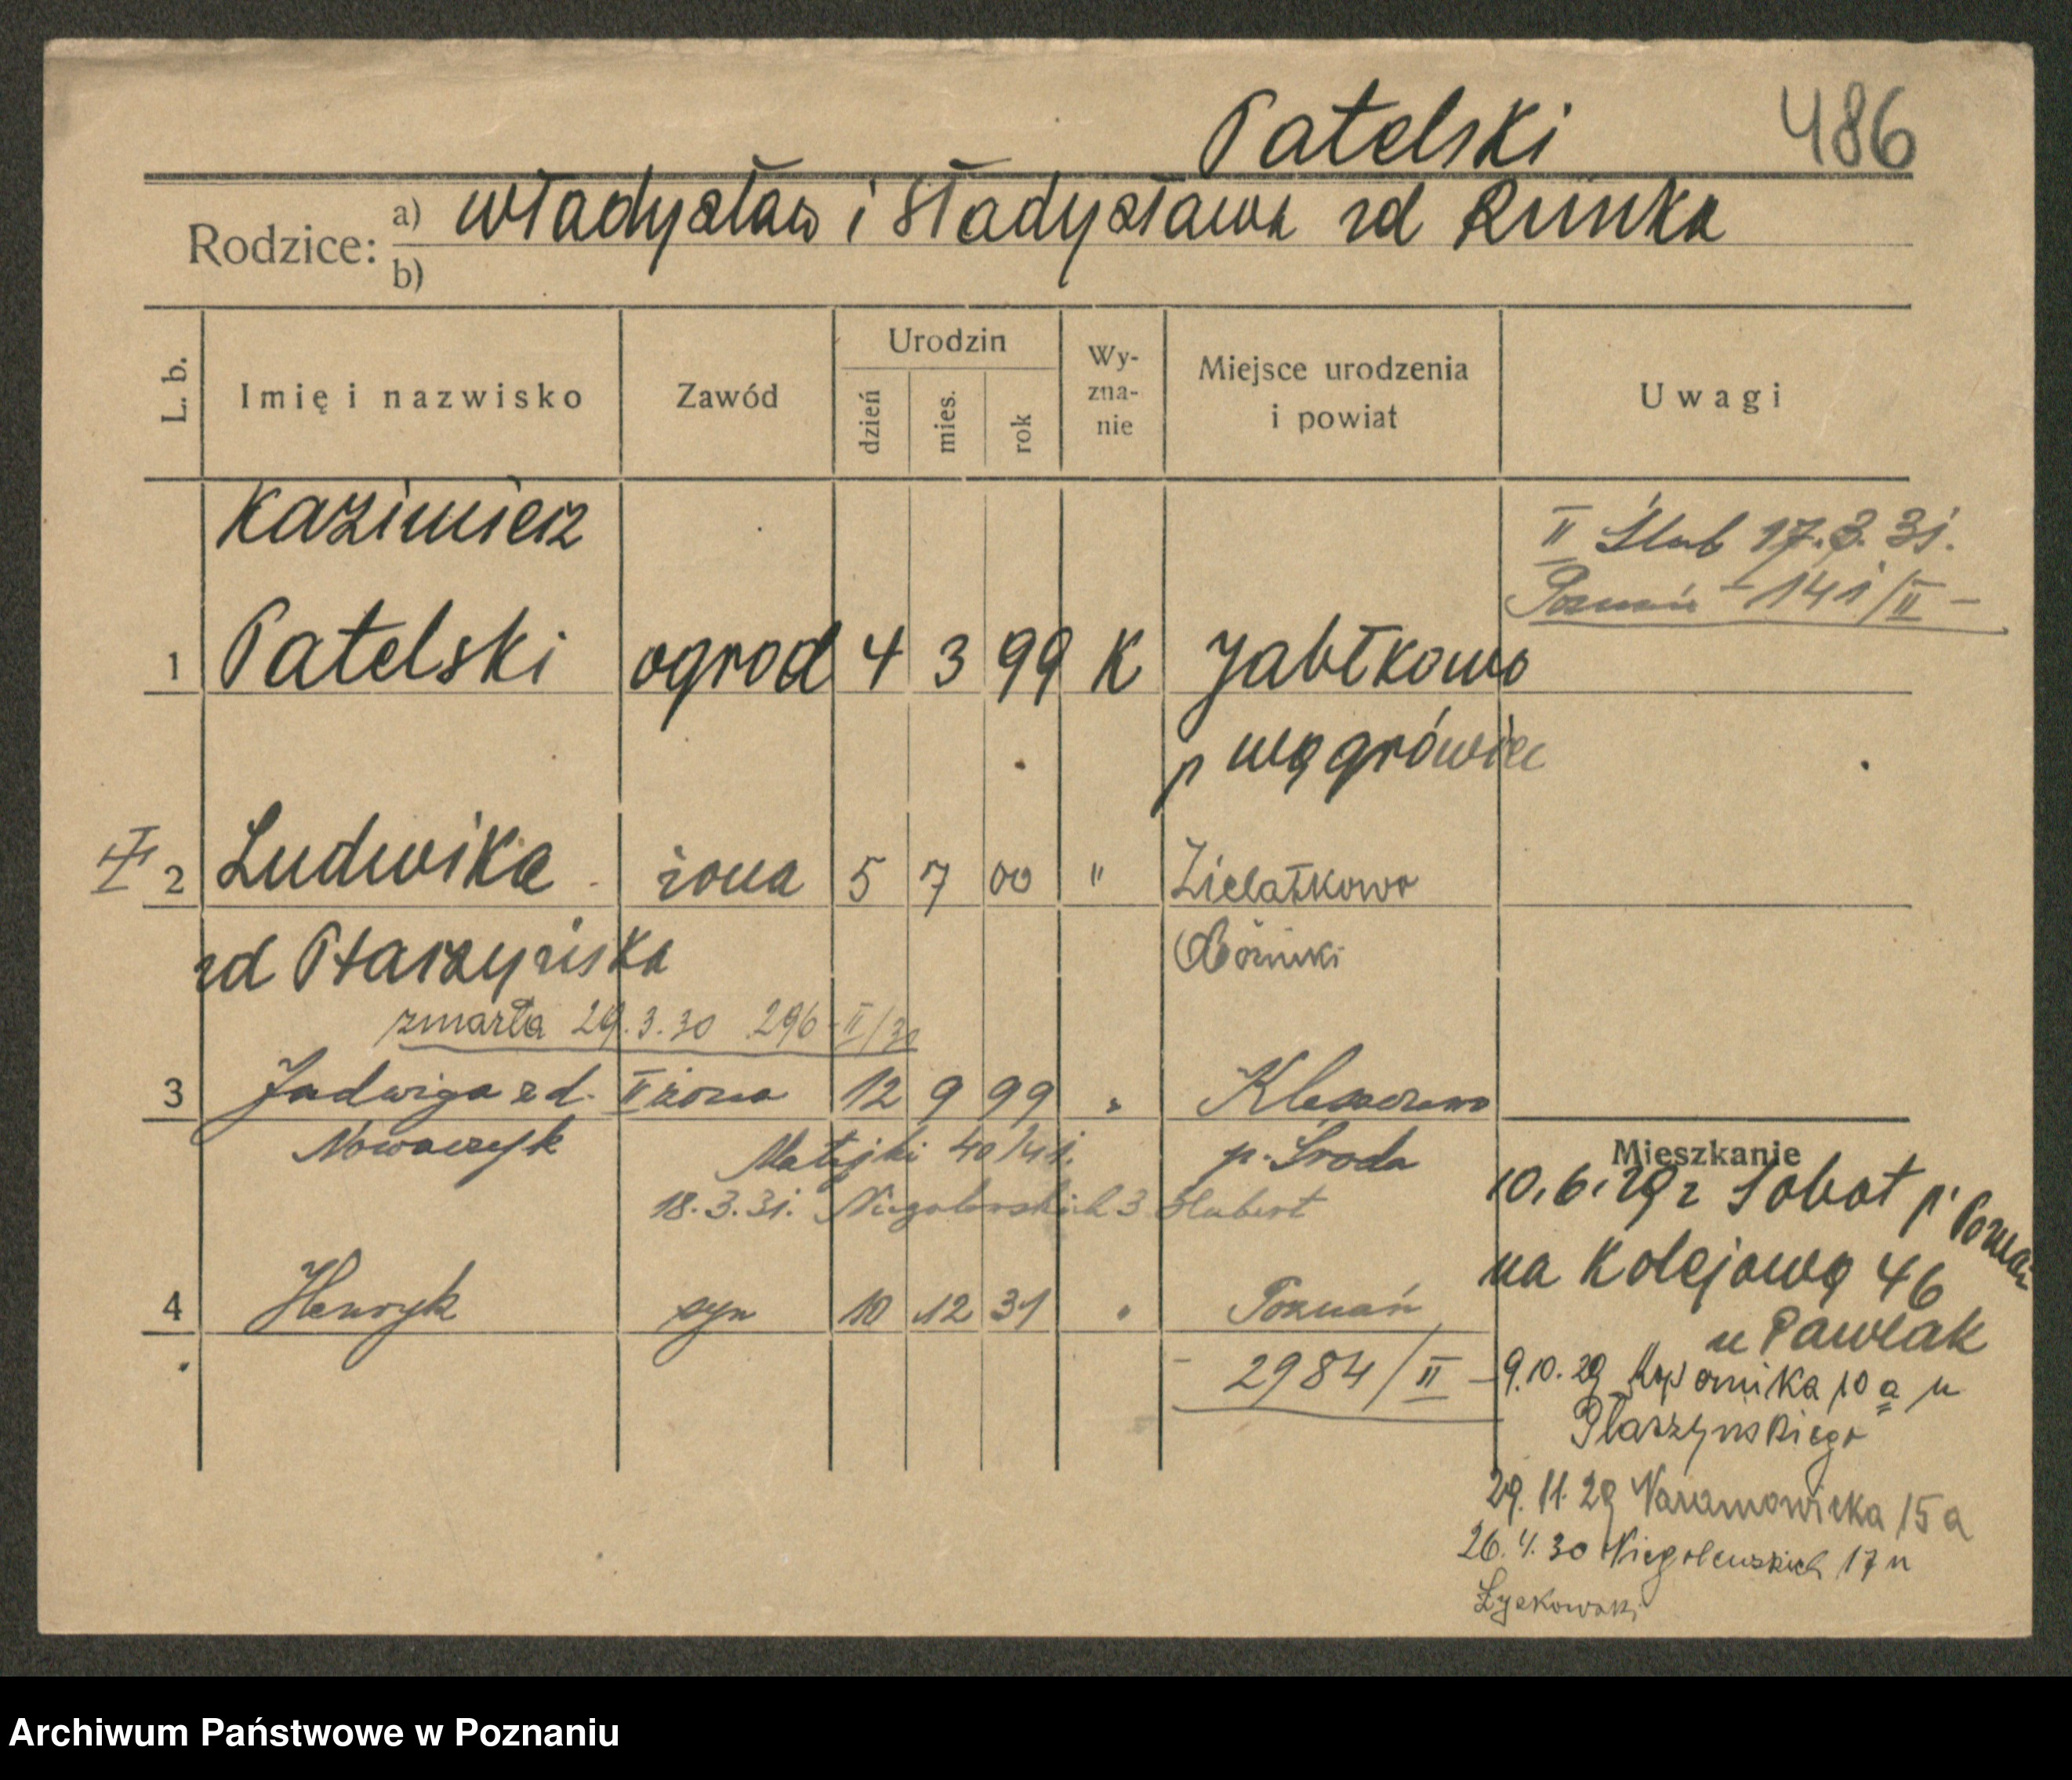 Patelski 486
Rodzice: a) Władysław i Władysława zd Runka
b)
L. b. Imię i nazwisko Zawód Urodzin dzień mies. rok Wy-zna-nie Miejsce urodzenia i powiat Uwagi
Kazimierz
II Ślub 17.3.31.
Poznań - 141/II -
1 Patelski ogrod 4 3 99 K Jabłkowo
p Wągrówiec
I 2 Ludwika żona 5 7 00 " Zielątkowo
Oborniki
zd Ptaszyńska
zmarła 29.3.30 296-II/30
3 Jadwiga zd. II żona 12 9 99 " Kleszczewo
Nowaczyk Matejki 40/41. p. Środa
18.3.31. Niegolewskich 3 Hubert
4 Henryk syn 10 12 31 " Poznań
- 2984/II -
Mieszkanie
10.6.29 z Sobot p. Poznań
na Kolejową 46
u Pawlak
9.10.29 Kopernika 10 a u
Płaszyńskiego
29.11.29 Naramowicka 15 a
26.4.30 Niegolewskich 17 u
Archiwum Państwowe w Poznaniu